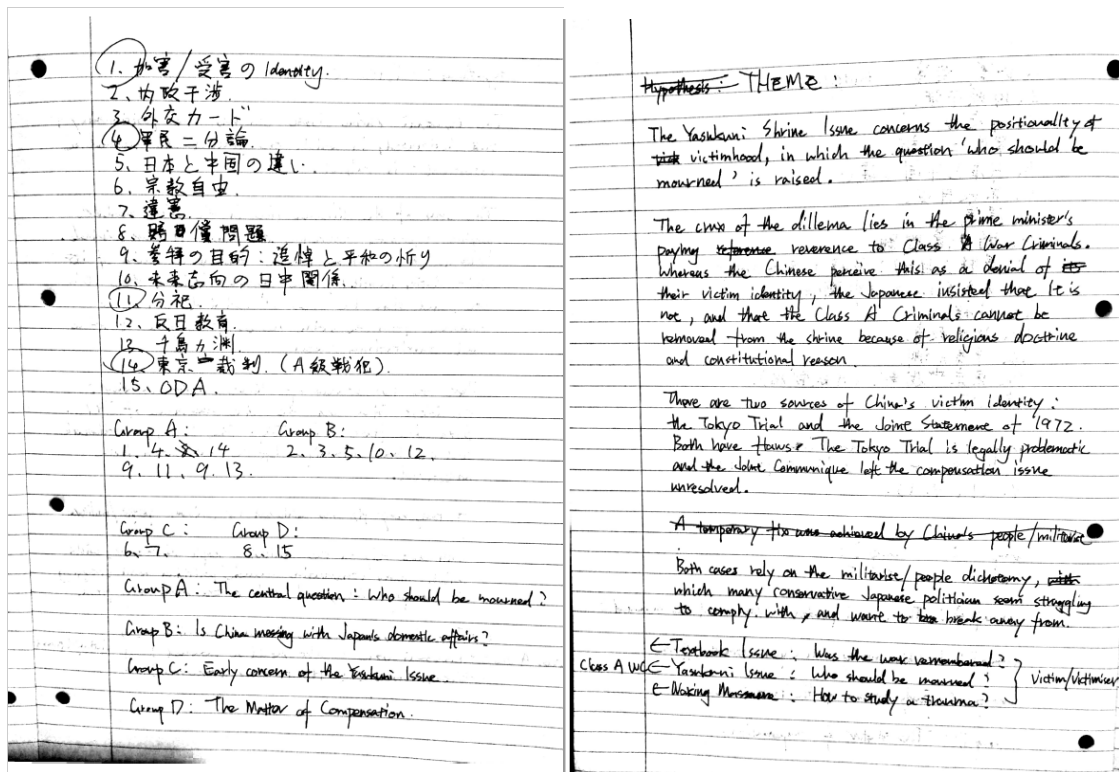 1. 加害/受害の Identity.
2、内政干渉
3、外交カード
4、軍民二分論
5、日本と中国の違い.
6、宗教自由.
7、違憲
8、賠償問題
9、参拝の目的:追悼と平和の祈り
10、未来志向の日中関係.
11、分祀.
12、反日教育.
13、千鳥ヶ淵
14、東京裁判.(A級戦犯).
15、ODA.
Group A: Group B:
1. 4. 14 2、3、5、10、12、
9、11、9、13、
Group C: Group D:
6、7、 8、15
Group A: The central question: Who should be mourned?
Group B: Is China messing with Japan's domestic affairs?
Group C: Early concern of the Yasukuni Issue
Group D: The Matter of Compensation.
Hypothesis: THEME:
The Yasukuni Shrine Issue concerns the positionality of
victimhood, in which the question 'who should be
mourned' is raised.
The crux of the dillema lies in the prime minister's
paying reference reverence to Class A War Criminals.
whereas the Chinese perceive this as a denial of its
their victim identity, the Japanese insisted that it is
not, and that the Class A Criminals cannot be
removed from the shrine because of religious doctrine
and constitutional reason
There are two sources of China's victim identity:
the Tokyo Trial and the Joint Statement of 1972.
Both have flaws. The Tokyo Trial is legally problematic
and the Joint Communique left the compensation issue
unresolved.
A temporary fix was achieved by China's people/militarist
Both cases rely on the militarist/people dichotomy, with
which many conservative Japanese politician seem struggling
to comply with, and want to break away from.
← Textbook Issue: Was the war remembered?
Class A WC ← Yasukuni Issue: Who should be mourned? Victim/Victimiser
← Naking Massacre: How to study a trauma?